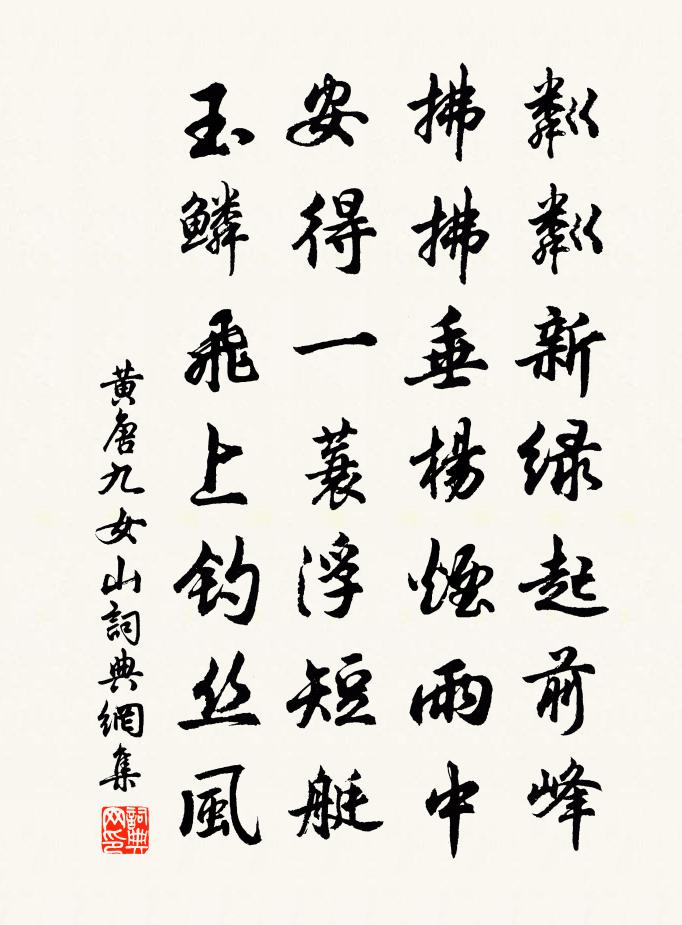 粼粼新緑起前峰
拂拂垂楊煙雨中
安得一蓑浮短艇
玉鱗飛上釣丝風
黄唐九女山詞典網集
詞典网印